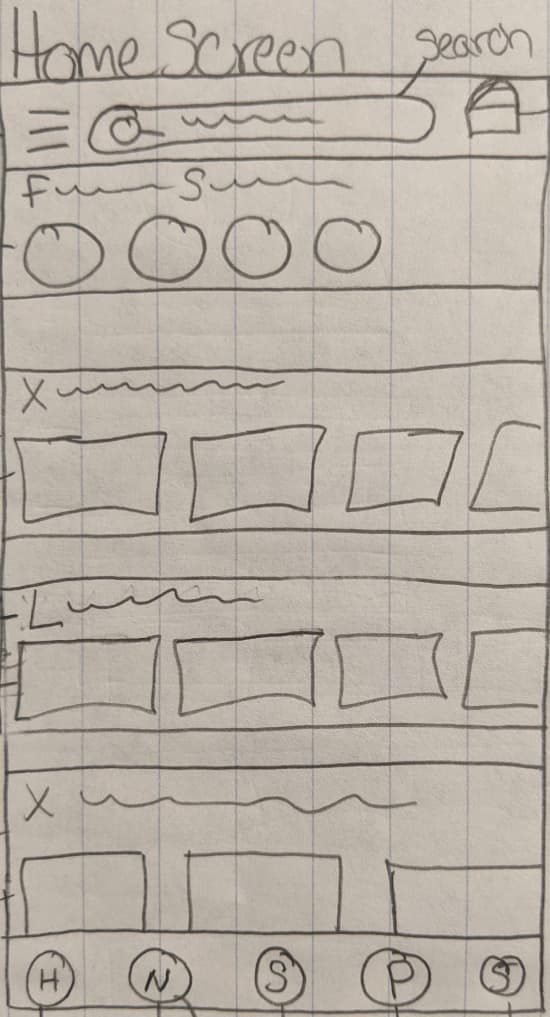 Home Screen
search
F S
X
L
X
H N S P S